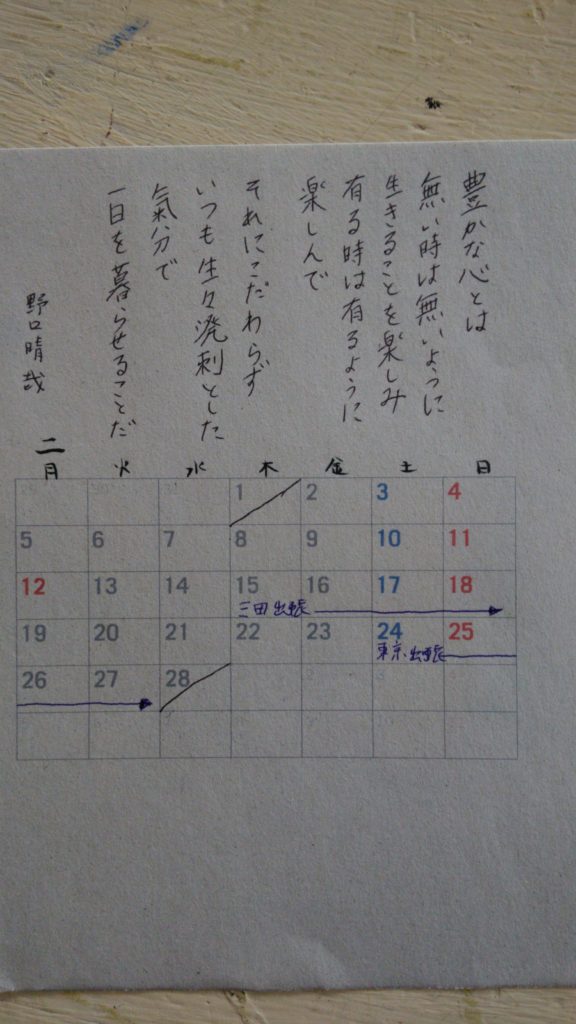 豊かな心とは
無い時は無いように
生きることを楽しみ
有る時は有るように
楽しんで
それにこだわらず
いつも生々溌刺とした
氣分で
一日を暮らせることだ
野口晴哉
二月 火 水 木 金 土 日
1 2 3 4
5 6 7 8 9 10 11
12 13 14 15 16 17 18
三田出張
19 20 21 22 23 24 25
東京出張
26 27 28